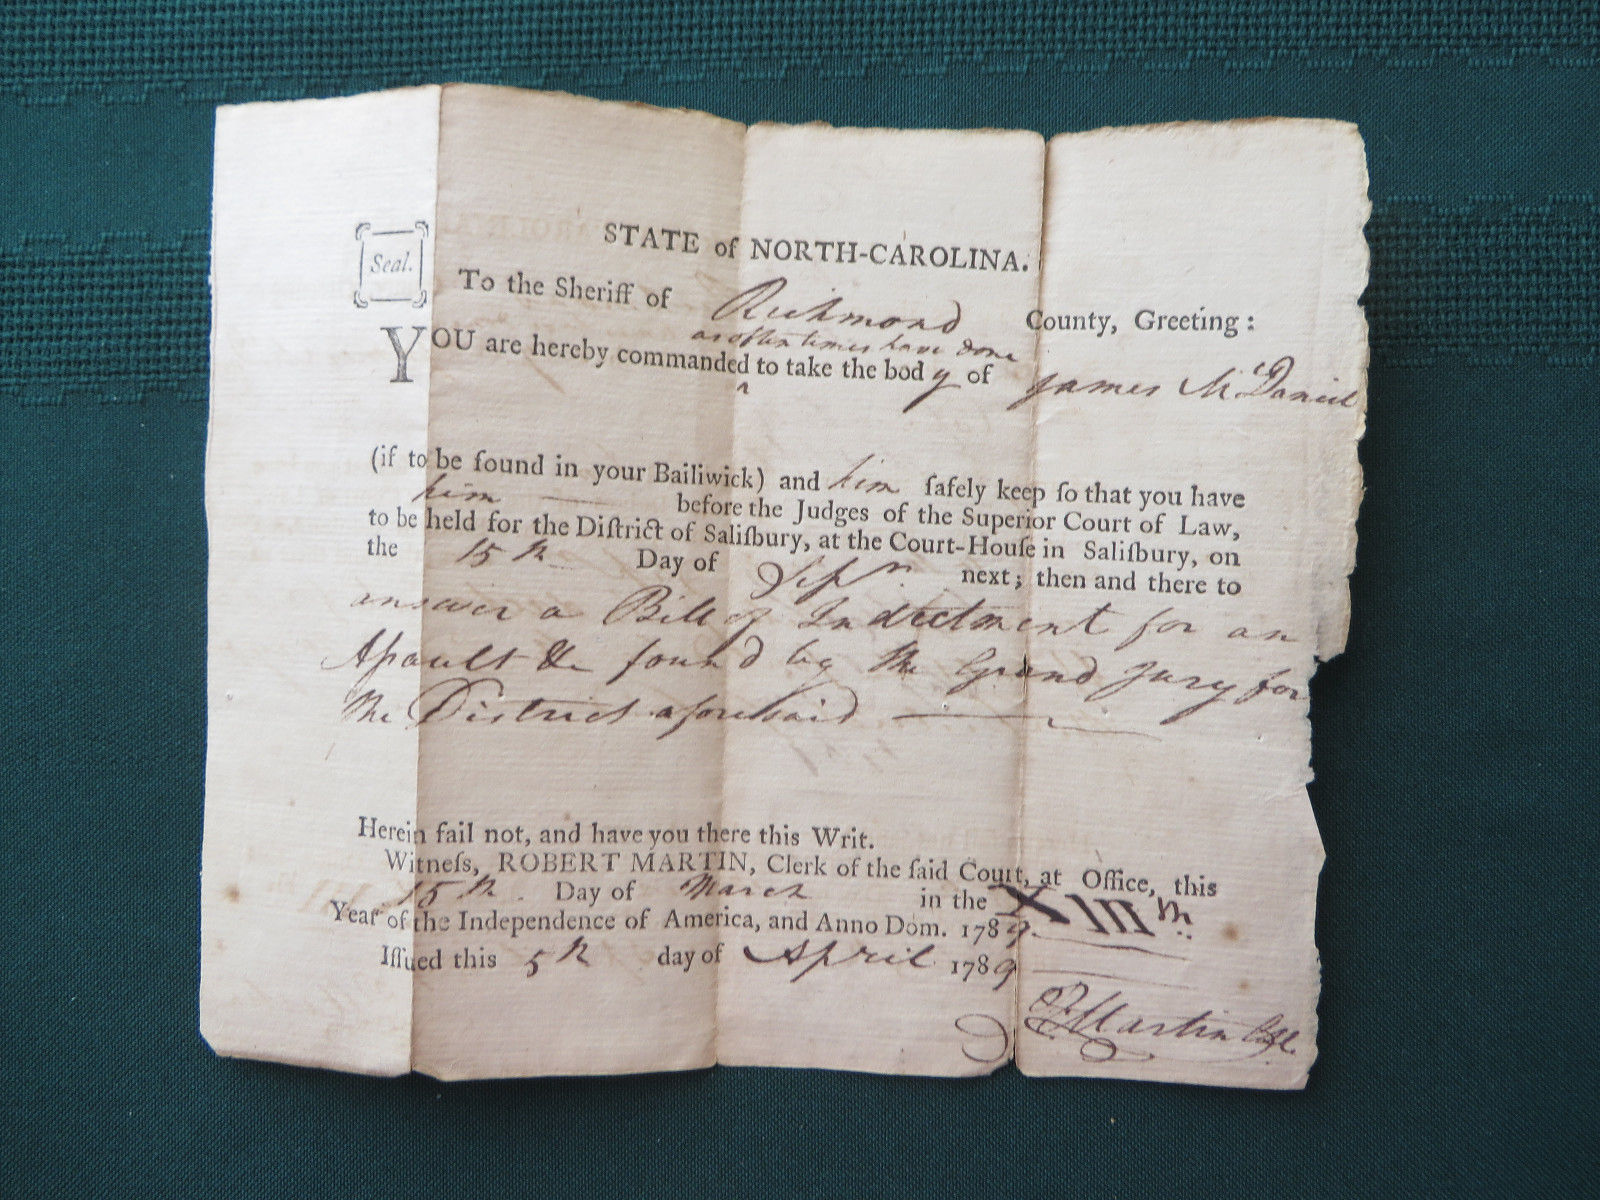 Seal.
STATE of NORTH-CAROLINA.
To the Sheriff of Richmond County, Greeting:
as often times have done
YOU are hereby commanded ‸ to take the body of James McDaniel
(if to be found in your Bailiwick) and him ſafely keep ſo that you have
him —— before the Judges of the Superior Court of Law,
to be held for the Diſtrict of Saliſbury, at the Court-Houſe in Saliſbury, on
the 15th Day of Sepr. next; then and there to
answer a Bill of Indictment for an
Aſsault &c found by the Grand Jury for
the District aforesaid ——
Herein fail not, and have you there this Writ.
Witneſs, ROBERT MARTIN, Clerk of the ſaid Court, at Office, this
15th. Day of March in the XIIIth.
Year of the Independence of America, and Anno Dom. 1789.
Iſſued this 5th day of April 1789
Martin